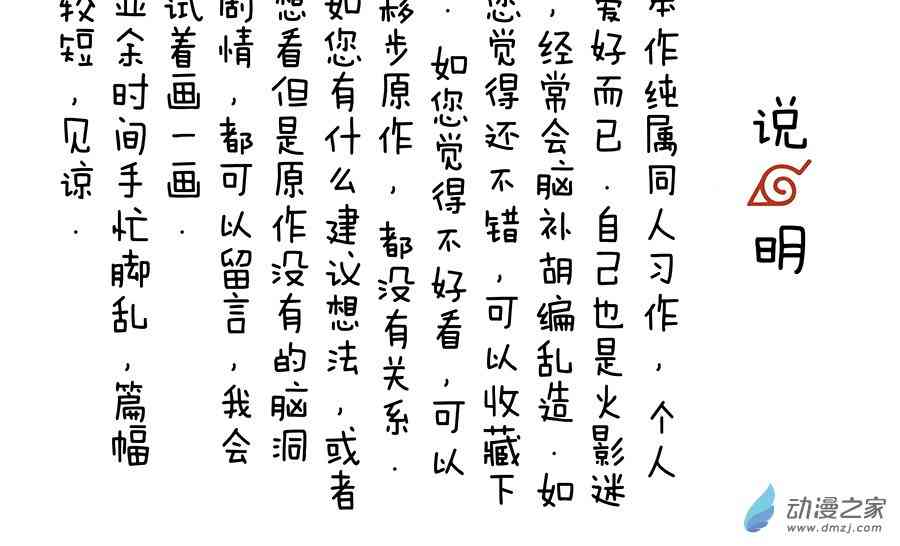 说明
本作纯属同人习作,个人
爱好而已.自己也是火影迷
,经常会脑补胡编乱造.如
您觉得还不错,可以收藏下
.如您觉得不好看,可以
移步原作,都没有关系.
如您有什么建议想法,或者
想看但是原作没有的脑洞
剧情,都可以留言,我会
试着画一画.
业余时间手忙脚乱,篇幅
较短,见谅.
动漫之家
www.dmzj.com